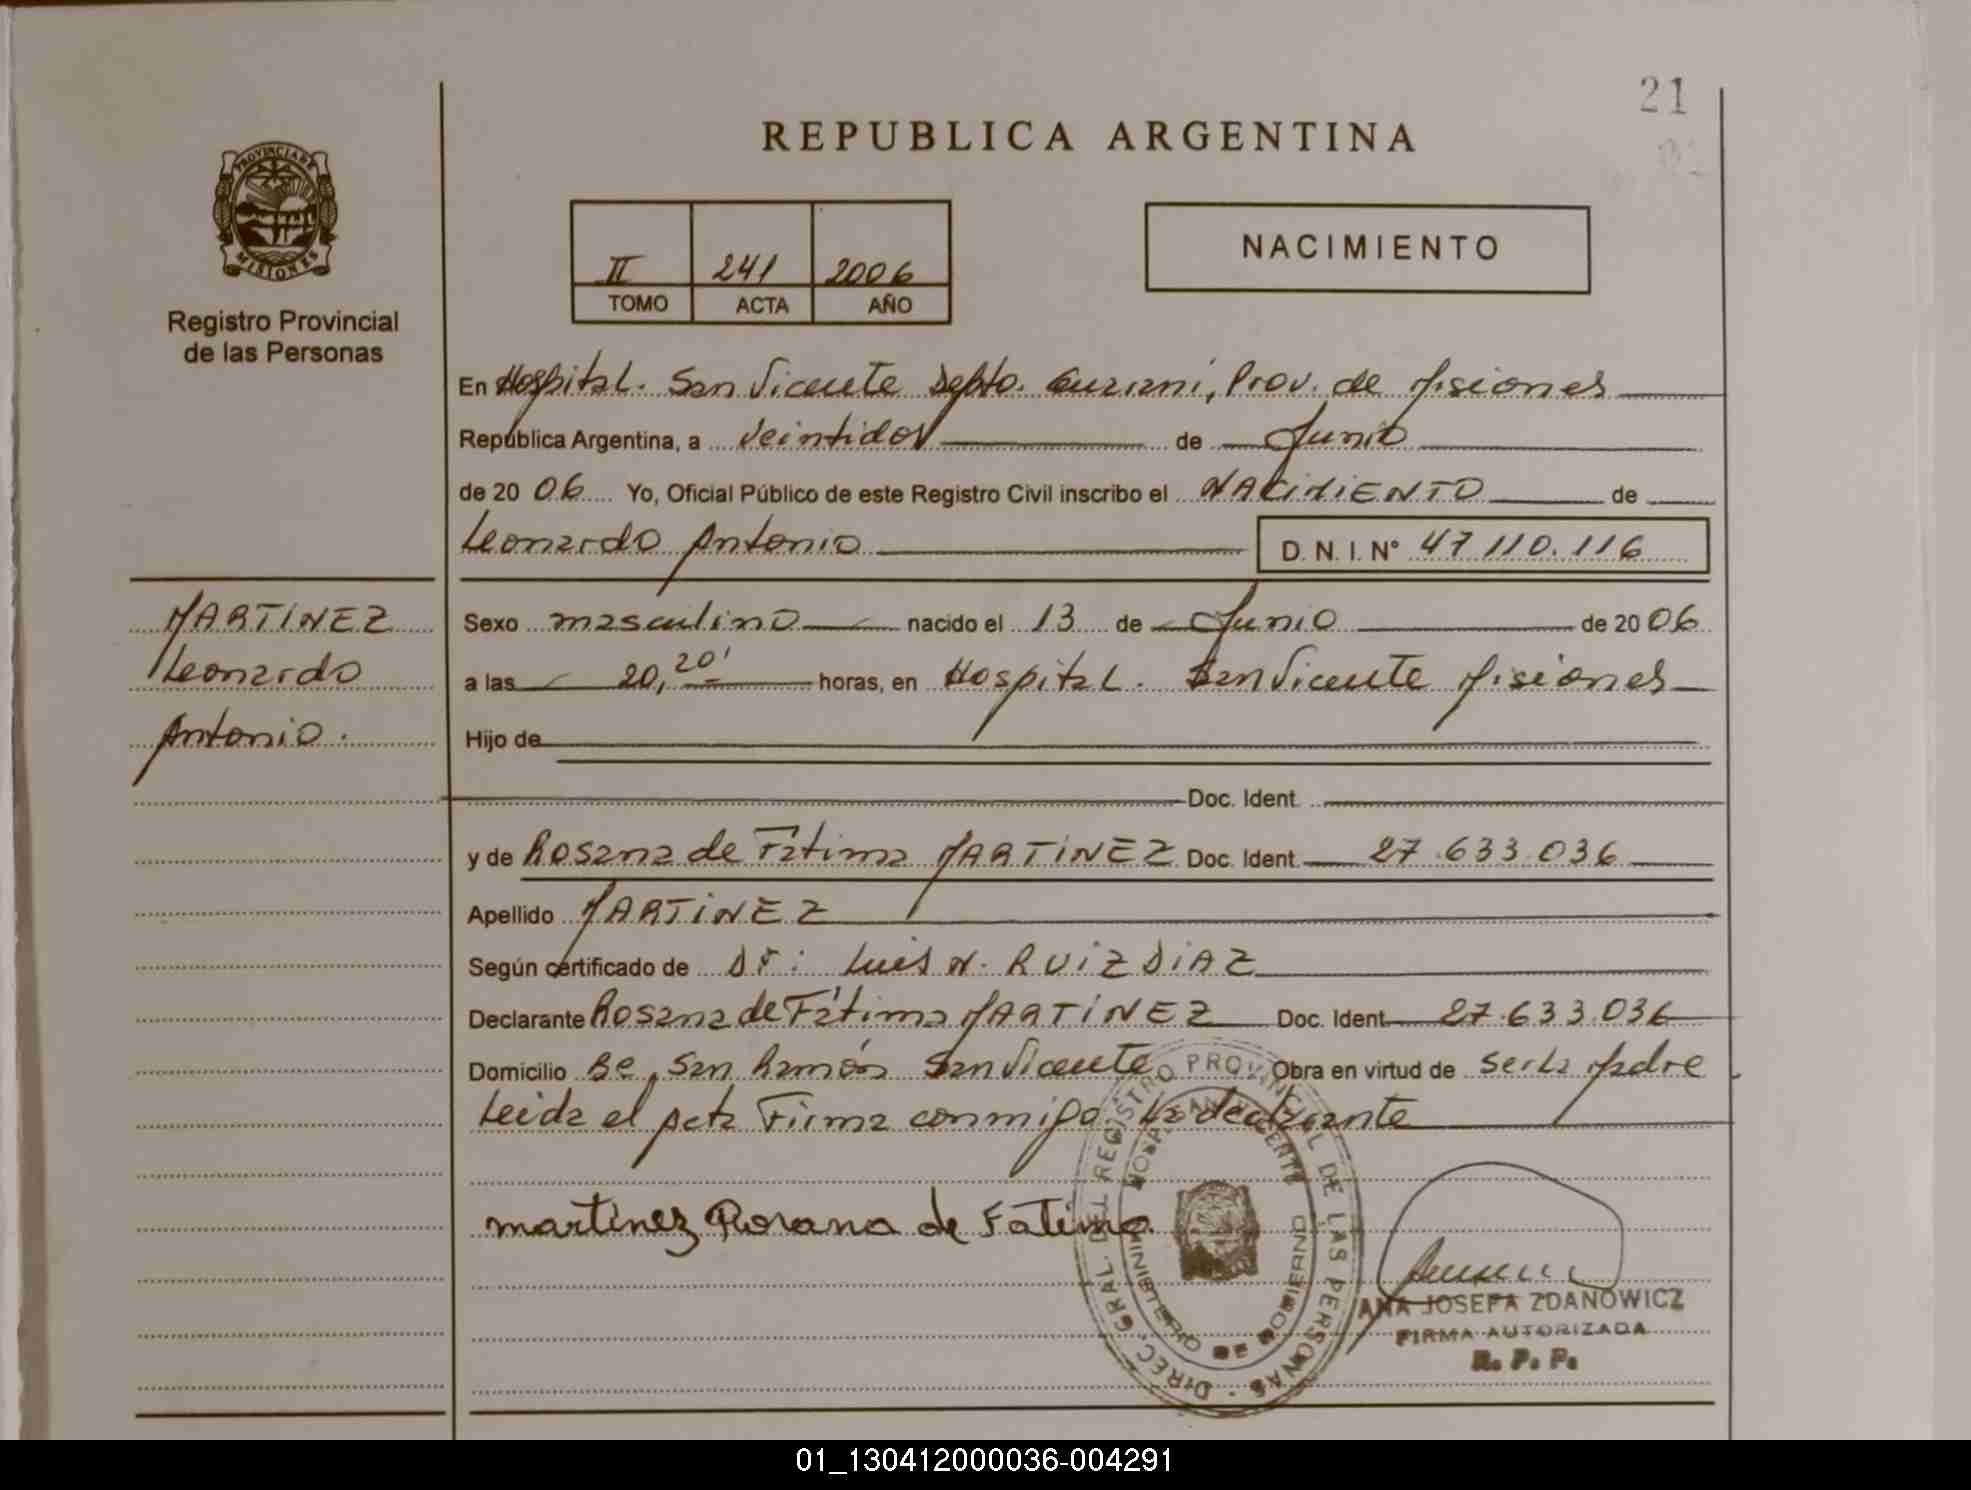 21
REPUBLICA ARGENTINA
PROVINCIA DE
MISIONES
Registro Provincial
de las Personas
II 241 2006
TOMO ACTA AÑO
NACIMIENTO
En Hospital. San Vicente Depto. Guarani, Prov. de Misiones
República Argentina, a veintidos de Junio
de 2006 Yo, Oficial Público de este Registro Civil inscribo el NACIMIENTO de
Leonardo Antonio D. N. I. N° 47 110.116
MARTINEZ
Leonardo
Antonio.
Sexo masculino nacido el 13 de Junio de 2006
a las 20,20' horas, en Hospital. San Vicente Misiones
Hijo de
Doc. Ident.
y de Rosana de Fatima MARTINEZ Doc. Ident. 27.633.036
Apellido MARTINEZ
Según certificado de Dr: Luis N. RUIZ DIAZ
Declarante Rosana de Fátima MARTINEZ Doc. Ident. 27.633.036
Domicilio Be. San Ramón San Vicente Obra en virtud de ser la Madre
Leida el Acta Firma conmigo la declarante
martinez Rosana de Fatima
DIREC. GRAL. DEL REGISTRO PROVINCIAL DE LAS PERSONAS
HOSP. SAN VICENTE
MINISTERIO DE GOBIERNO
ANA JOSEFA ZDANOWICZ
FIRMA AUTORIZADA
R. P. P.
01_130412000036-004291